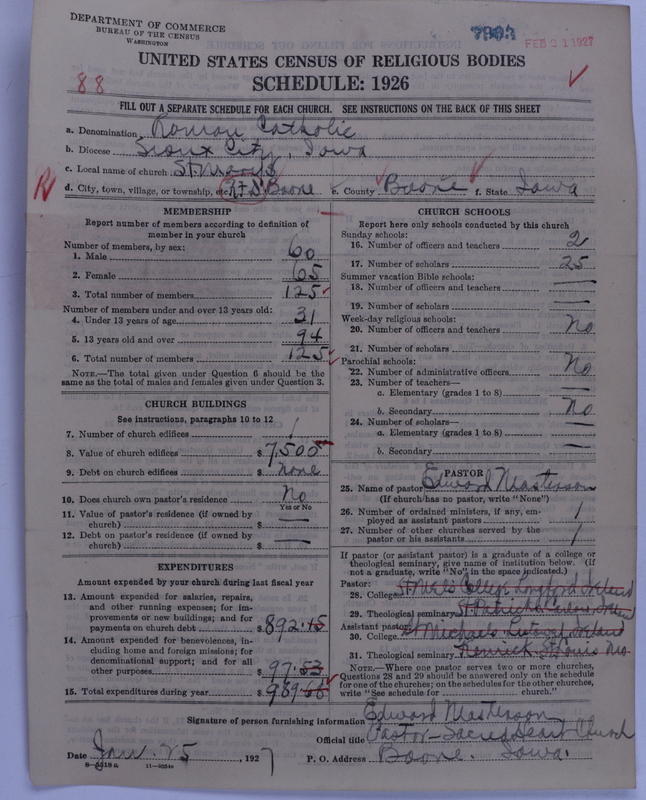 DEPARTMENT OF COMMERCE
BUREAU OF THE CENSUS
WASHINGTON
7903
FEB 21 1927
UNITED STATES CENSUS OF RELIGIOUS BODIES
88
SCHEDULE: 1926
FILL OUT A SEPARATE SCHEDULE FOR EACH CHURCH. SEE INSTRUCTIONS ON THE BACK OF THIS SHEET
a. Denomination Roman Catholic
b. Diocese Sioux City, Iowa
c. Local name of church St.
d. City, town, village, or township, etc. Boone e. County Boone f. State Iowa
MEMBERSHIP
Report number of members according to definition of
member in your church
Number of members, by sex:
1. Male 60
2. Female 65
3. Total number of members 125
Number of members under and over 13 years old:
4. Under 13 years of age 31
5. 13 years old and over 94
6. Total number of members 125
NOTE.—The total given under Question 6 should be the
same as the total of males and females given under Question 3.
CHURCH BUILDINGS
See instructions, paragraphs 10 to 12
7. Number of church edifices 1
8. Value of church edifices $ 7,500
9. Debt on church edifices $ none
10. Does church own pastor's residence No
Yes or No
11. Value of pastor's residence (if owned by
church) $ —
12. Debt on pastor's residence (if owned by
church) $ —
EXPENDITURES
Amount expended by your church during last fiscal year
13. Amount expended for salaries, repairs,
and other running expenses; for im-
provements or new buildings; and for
payments on church debt $ 892.15
14. Amount expended for benevolences, in-
cluding home and foreign missions; for
denominational support; and for all
other purposes $ 97.53
15. Total expenditures during year $ 989.68
CHURCH SCHOOLS
Report here only schools conducted by this church
Sunday schools:
16. Number of officers and teachers 2
17. Number of scholars 25
Summer vacation Bible schools:
18. Number of officers and teachers —
19. Number of scholars —
Week-day religious schools:
20. Number of officers and teachers No
21. Number of scholars —
Parochial schools:
22. Number of administrative officers No
23. Number of teachers—
a. Elementary (grades 1 to 8) —
b. Secondary No
24. Number of scholars—
a. Elementary (grades 1 to 8) —
b. Secondary —
PASTOR
25. Name of pastor Edward Masterson
(If church has no pastor, write "None")
26. Number of ordained ministers, if any, em-
ployed as assistant pastors 1
27. Number of other churches served by the
pastor or his assistants 1
If pastor (or assistant pastor) is a graduate of a college or
theological seminary, give name of institution below. (If
not a graduate, write "No" in the space indicated.)
Pastor:
28. College St. Mel's College Longford Ireland
29. Theological seminary St. Patrick's Carlow, Ireland
Assistant pastor:
30. College St. Michaels Listowel Ireland
31. Theological seminary Kenrick St. Louis Mo.
NOTE.—Where one pastor serves two or more churches,
Questions 28 and 29 should be answered only on the schedule
for one of the churches; on the schedules for the other churches,
write "See schedule for church."
Signature of person furnishing information Edward Masterson
Official title Pastor-Sacred Heart Church
Date Jan. 25, 1927 P. O. Address Boone. Iowa.